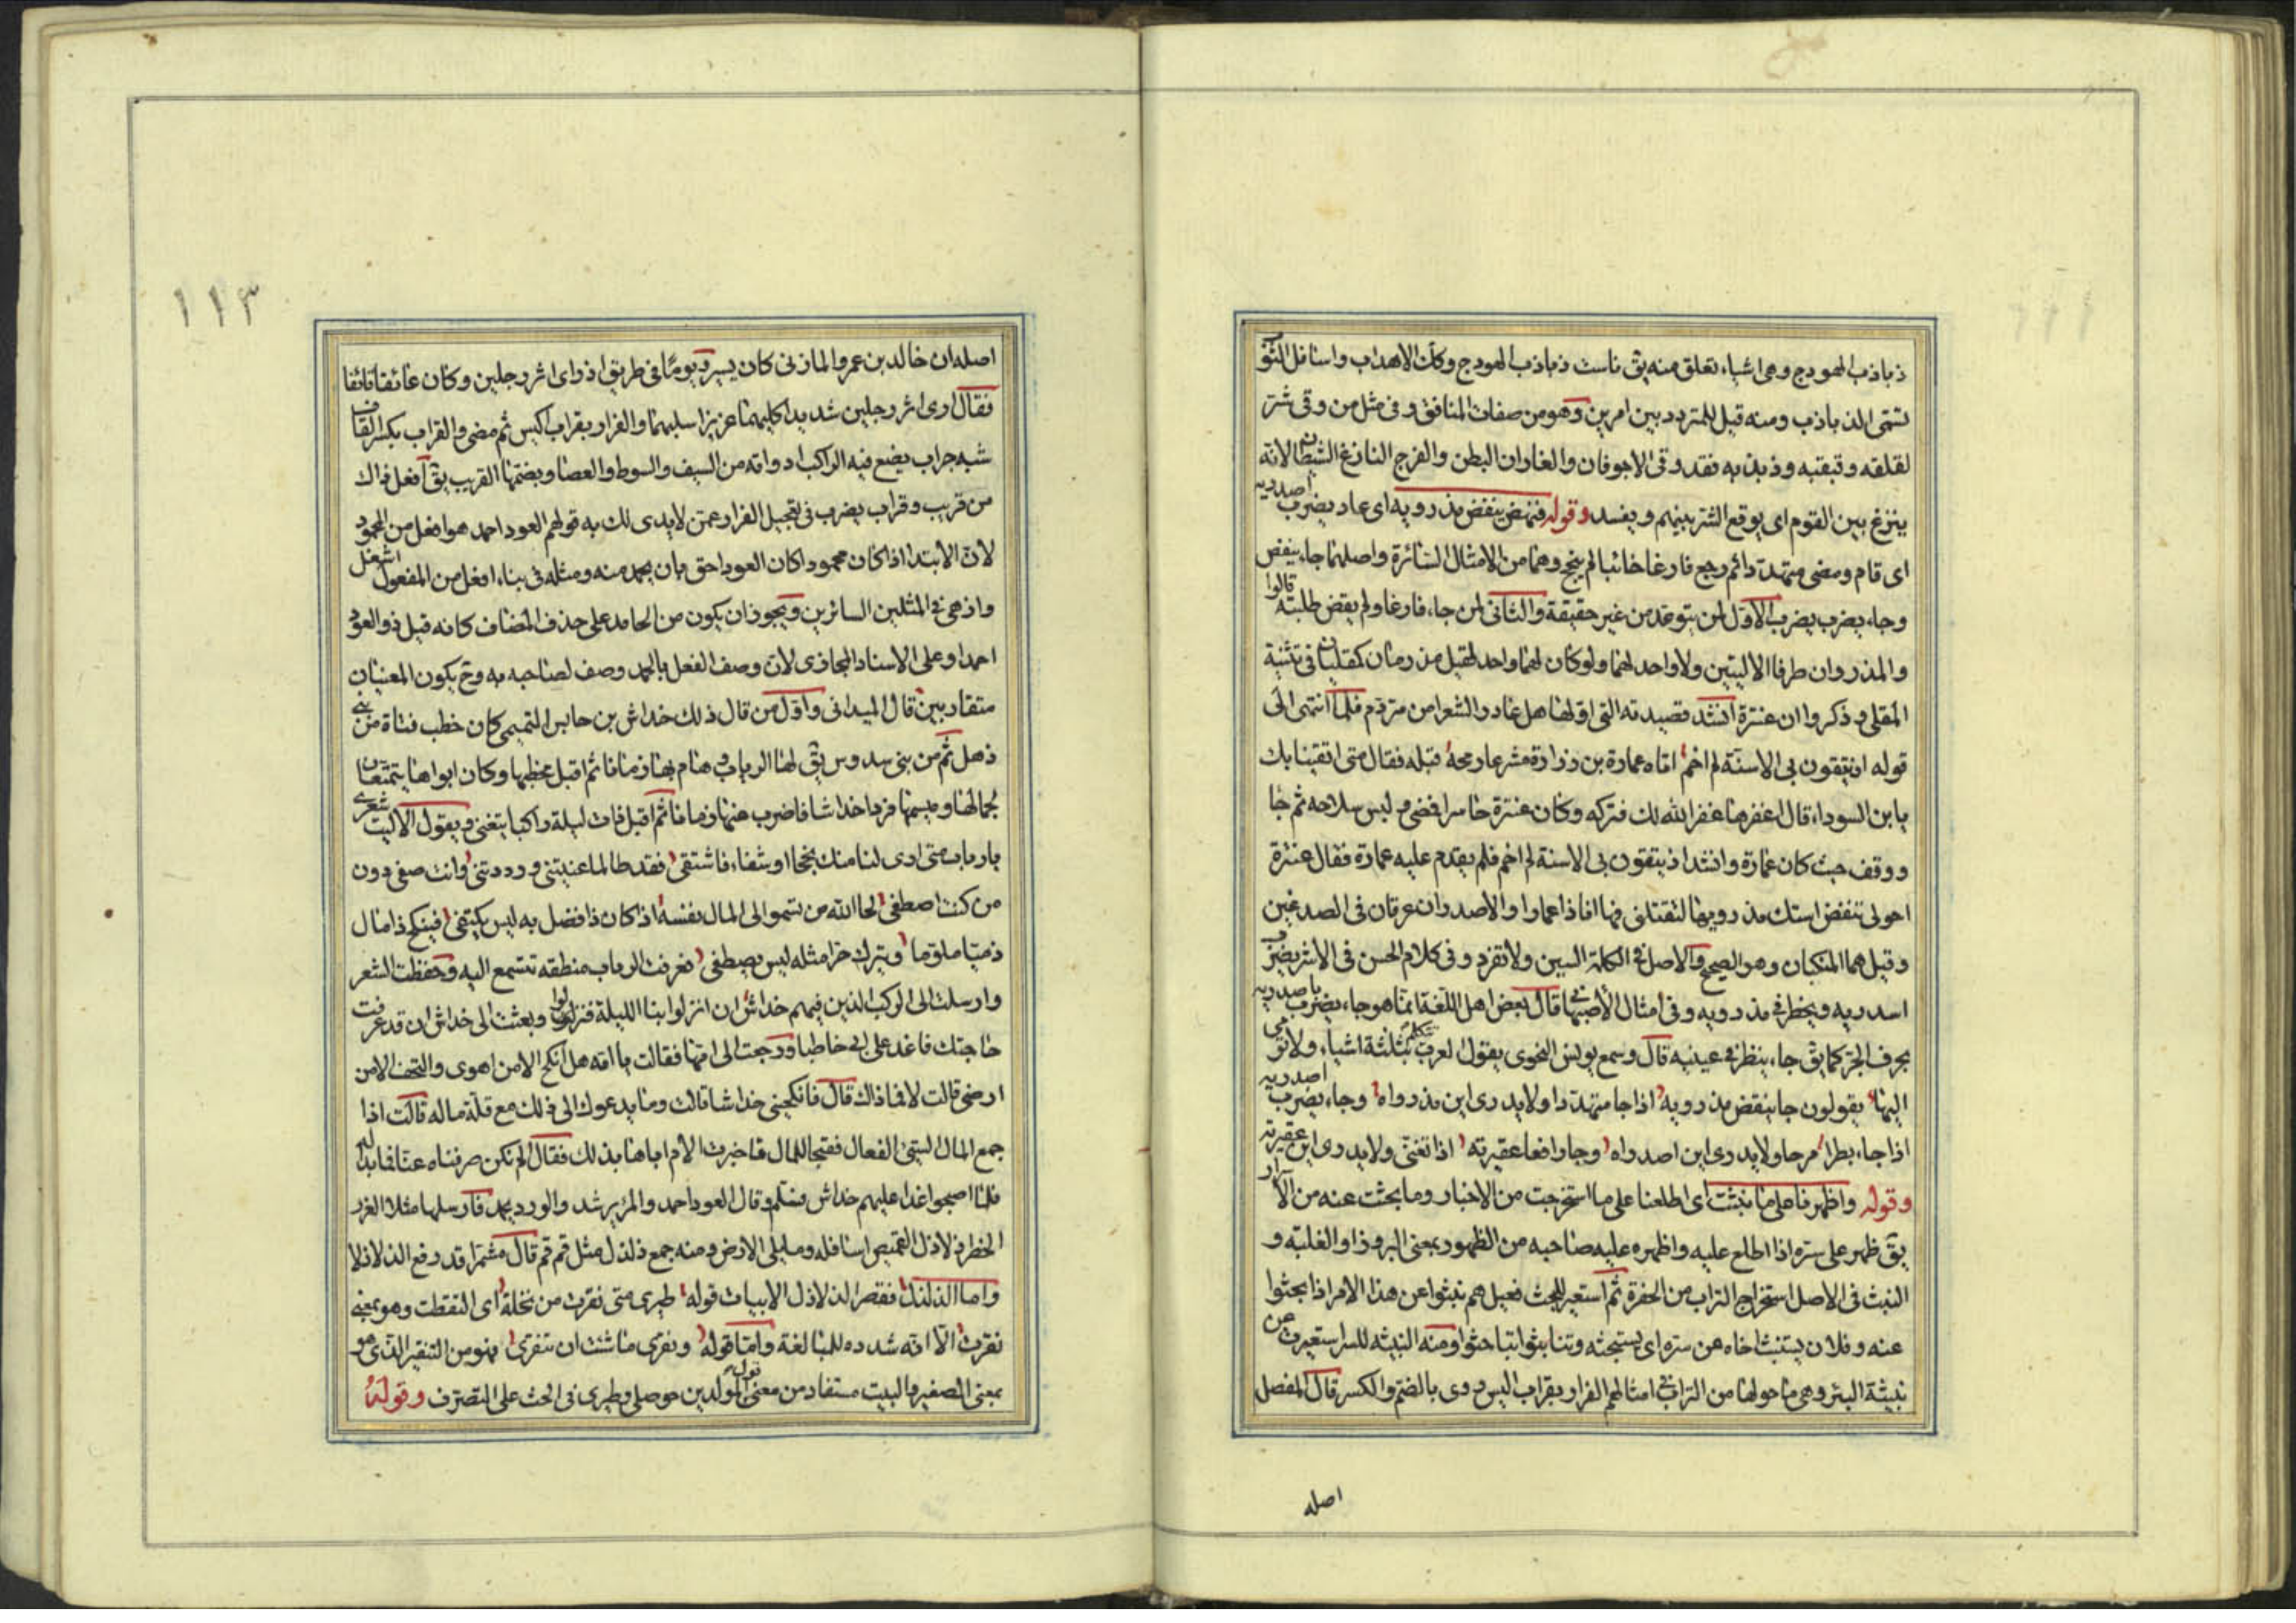 ذباذب الهودج وهى اشياء تعلق منه يق ناست ذباذب الهودج وكان الاهداب واسافل الثوب
تسمى الذباذب ومنه قيل للمتردد بين امرين وهو من صفات المنافق وفى مثل من وقى شر
لقلقه وقبقبه وذبذبه فقد وقى الاجوفان والغاران البطن والفرج النازغ الشيطان لانه
ينزغ بين القوم اى يوقع الشر بينهم ويفسد وقوله فنهض ينفض مذرويه اى عاد يضرب اصدريه
اى قام ومضى متهددا ثم رجع فارغا خائبا لم ينجح وهما من الامثال السائرة واصلهما جاء ينفض
وجاء يضرب يضرب الاول لمن يتوعد من غير حقيقة والثانى لمن جاء فارغا ولم يقض طلبته قالوا
والمذروان طرفا الاليتين ولا واحد لهما ولو كان لهما واحد لقيل مذريان كقليان فى تثنية
المقلى وذكروا ان عنترة انشد قصيدته التى اولها هل غادر الشعراء من متردم فلما انتهى الى
قوله اذ يتقون بى الاسنة لم اخم اتاه عمارة بن زرارة مشرعا رمحه قبله فقال متى اتقينا بك
يا بن السوداء قال اغفرها غفر الله لك فتركه وكان عنترة حاسرا فمضى ولبس سلاحه ثم جا
ووقف حيث كان عمارة وانشد اذ يتقون بى الاسنة لم اخم فلم يقدم عليه عمارة فقال عنترة
احولى تنفض استك مذرويها لتقتلنى فها انا ذا عمارا والاصدران عرقان فى الصدغين
وقيل هما المنكبان وهو الصحيح والاصل فى الكلمة السين ولا تفرد وفى كلام الحسن فى الاشر يضرب
اسدريه ويخطر فى مذرويه وفى امثال الاصبهانى قال بعض اهل اللغة انما هو جاء يضرب باصدريه
بحرف الجر كما يق جاء ينظر فى عينيه قال وسمع يونس النحوى يقول العرب تتكلم بثلثة اشياء ولا ترى
اليها يقولون جا ينفض مذرويه اذا جا متهددا ولا يدرى اين مذرواه وجاء يضرب اصدريه
اذا جاء بطرا مرحا ولا يدرى اين اصدراه وجا رافعا عقيرته اذا تغنى ولا يدرى اين عقيرته
وقوله واظهرنا على ما نبثت اى اطلعنا على ما استخرجت من الاخبار وما بحثت عنه من الاسرار
يق ظهر على سره اذا اطلع عليه واظهره عليه صاحبه من الظهور بمعنى البروز او الغلبة و
النبث فى الاصل استخراج التراب من الحفرة ثم استعير للبحث فقيل هم نبثوا عن هذا الامر اذا بحثوا
عنه وفلان يستنبث اخاه عن سره اى يستبحثه وتنابثوا تباحثوا ومنه النبيثه للسر استعيرت من
نبيثة البئر وهى ما حولها من التراب فى امثالهم الفرار بقراب اكيس روى بالضم والكسر قال المفضل
اصله
١١٣
اصله ان خالد بن عمرو المازنى كان يسير يوما فى طريق اذ راى اثر رجلين وكان عائفا قائفا
فقال ارى اثر رجلين شديدا كلبهما عزيزا سلبهما والفرار بقراب اكيس ثم مضى والقراب بكسر القاف
شبه جراب يضع فيه الراكب ادواته من السيف والسوط والعصا وبضمها القريب يق افعل ذاك
من قريب وقراب يضرب فى تعجيل الفرار عمن لا يدى لك به قولهم العود احمد هو افعل من المحمود
لان الابتداء اذا كان محمودا كان العود احق بان يحمد منه ومثله فى بناء افعل من المفعول اشغل
وازهى فى المثلين السائرين ويجوز ان يكون من الحامد على حذف المضاف كانه قيل ذو العود
احمد او على الاسناد المجازى لان وصف الفعل بالحمد وصف لصاحبه به وح يكون المعنيان
متقاربين قال الميدانى واول من قال ذلك خداش بن حابس التميمى كان خطب فتاة من بنى
ذهل ثم من بنى سدوس يق لها الرباب وهام بها زمانا ثم اقبل يخطبها وكان ابواها يتمنعان
لجمالها وميسمها فردا خداشا فاضرب عنها زمانا ثم اقبل ذات ليلة راكبا يتغنى ويقول الا ليت شعرى
يا رباب متى ارى لنا منك نجحا او شفاء فاشتفى فقد طالما عنيتنى ورددتنى وانت صفى دون
من كنت اصطفى لحا الله من تسمو الى المال نفسه اذا كان ذا فضل به ليس يكتفى فينكح ذا مال
ذميما ملوما ويترك حرا مثله ليس يصطفى فعرفت الرباب منطقه تتسمع اليه وحفظت الشعر
وارسلت الى الركب الذين فيهم خداش ان انزلوا بنا الليلة فنزلوا وبعثت الى خداش ان قد عرفت
حاجتك فاغد على ابى خاطبا ورجعت الى امها فقالت يا امه هل انكح الا من اهوى والتحف الا من
ارضى قالت لا فما ذاك قال فانكحينى خداشا قالت وما يدعوك الى ذلك مع قلة ماله قالت اذا
جمع المال السيئ الفعال فقبحا للمال فاخبرت الام اباها بذلك فقال الم نكن صرفناه عنا فما بدا له
فلما اصبحوا غدا عليهم خداش فسلم وقال العود احمد والمرء يرشد والورد يحمد فارسلها مثلا الغرر
الخطر ذلاذل القميص اسافله وما يلى الارض ومنه جمع ذلذل مثل قم قم قال مشمرا قد رفع الذلاذلا
واما الذلذل فقصر الذلاذل الابيات قوله طيرى متى نقرت من نخلة اى التقطت وهو بمعنى
نقرت الا انه شدده للمبالغة واما قوله ونقرى ما شئت ان تنقرى فهو من التنقير الذى هو
بمعنى الصفير والبيت مستفاد من معنى قول المولدين حوصلى وطيرى فى الحث على التصرف وقوله